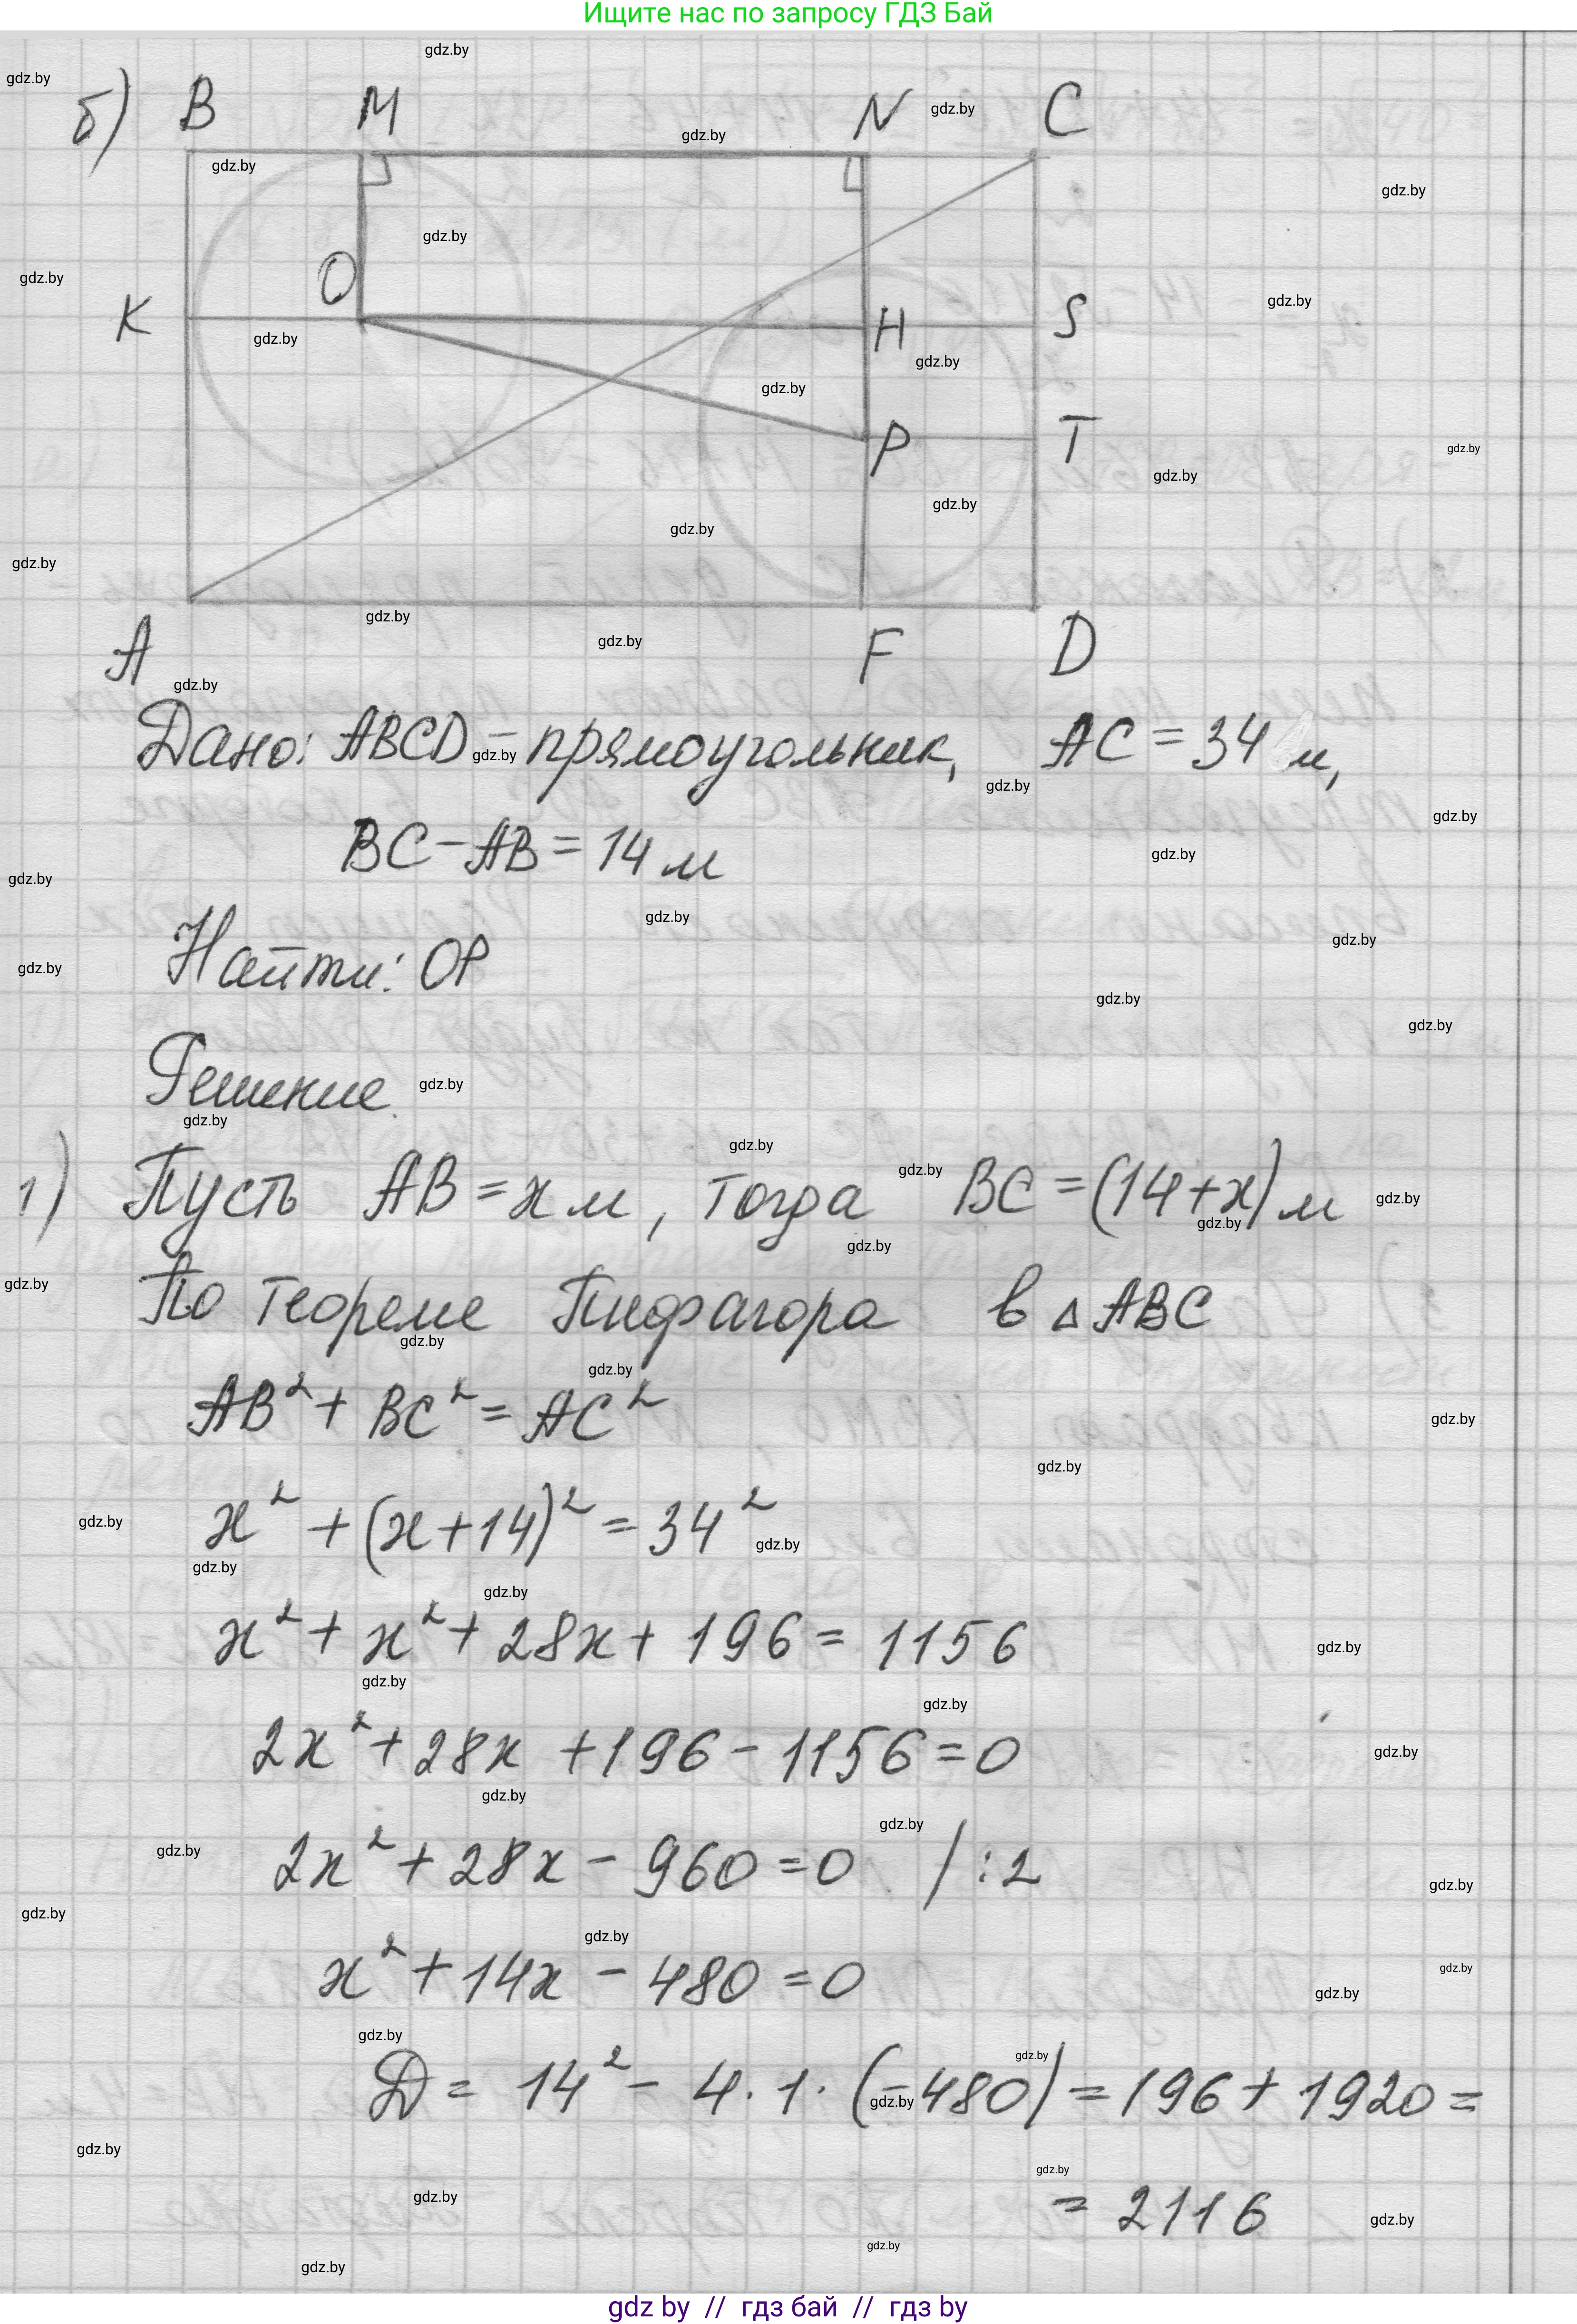 Ищите нас по запросу ГДЗ Бай
б) B M N C
K O H S
P T
A F D
Дано: ABCD – прямоугольник, AC = 34 м,
BC – AB = 14 м
Найти: OP
Решение.
1) Пусть AB = x м, тогда BC = (14 + x) м
По теореме Пифагора в △ ABC
AB² + BC² = AC²
x² + (x + 14)² = 34²
x² + x² + 28x + 196 = 1156
2x² + 28x + 196 – 1156 = 0
2x² + 28x – 960 = 0 / : 2
x² + 14x – 480 = 0
D = 14² – 4 · 1 · (–480) = 196 + 1920 =
= 2116
gdz by // гдз бай // гдз by